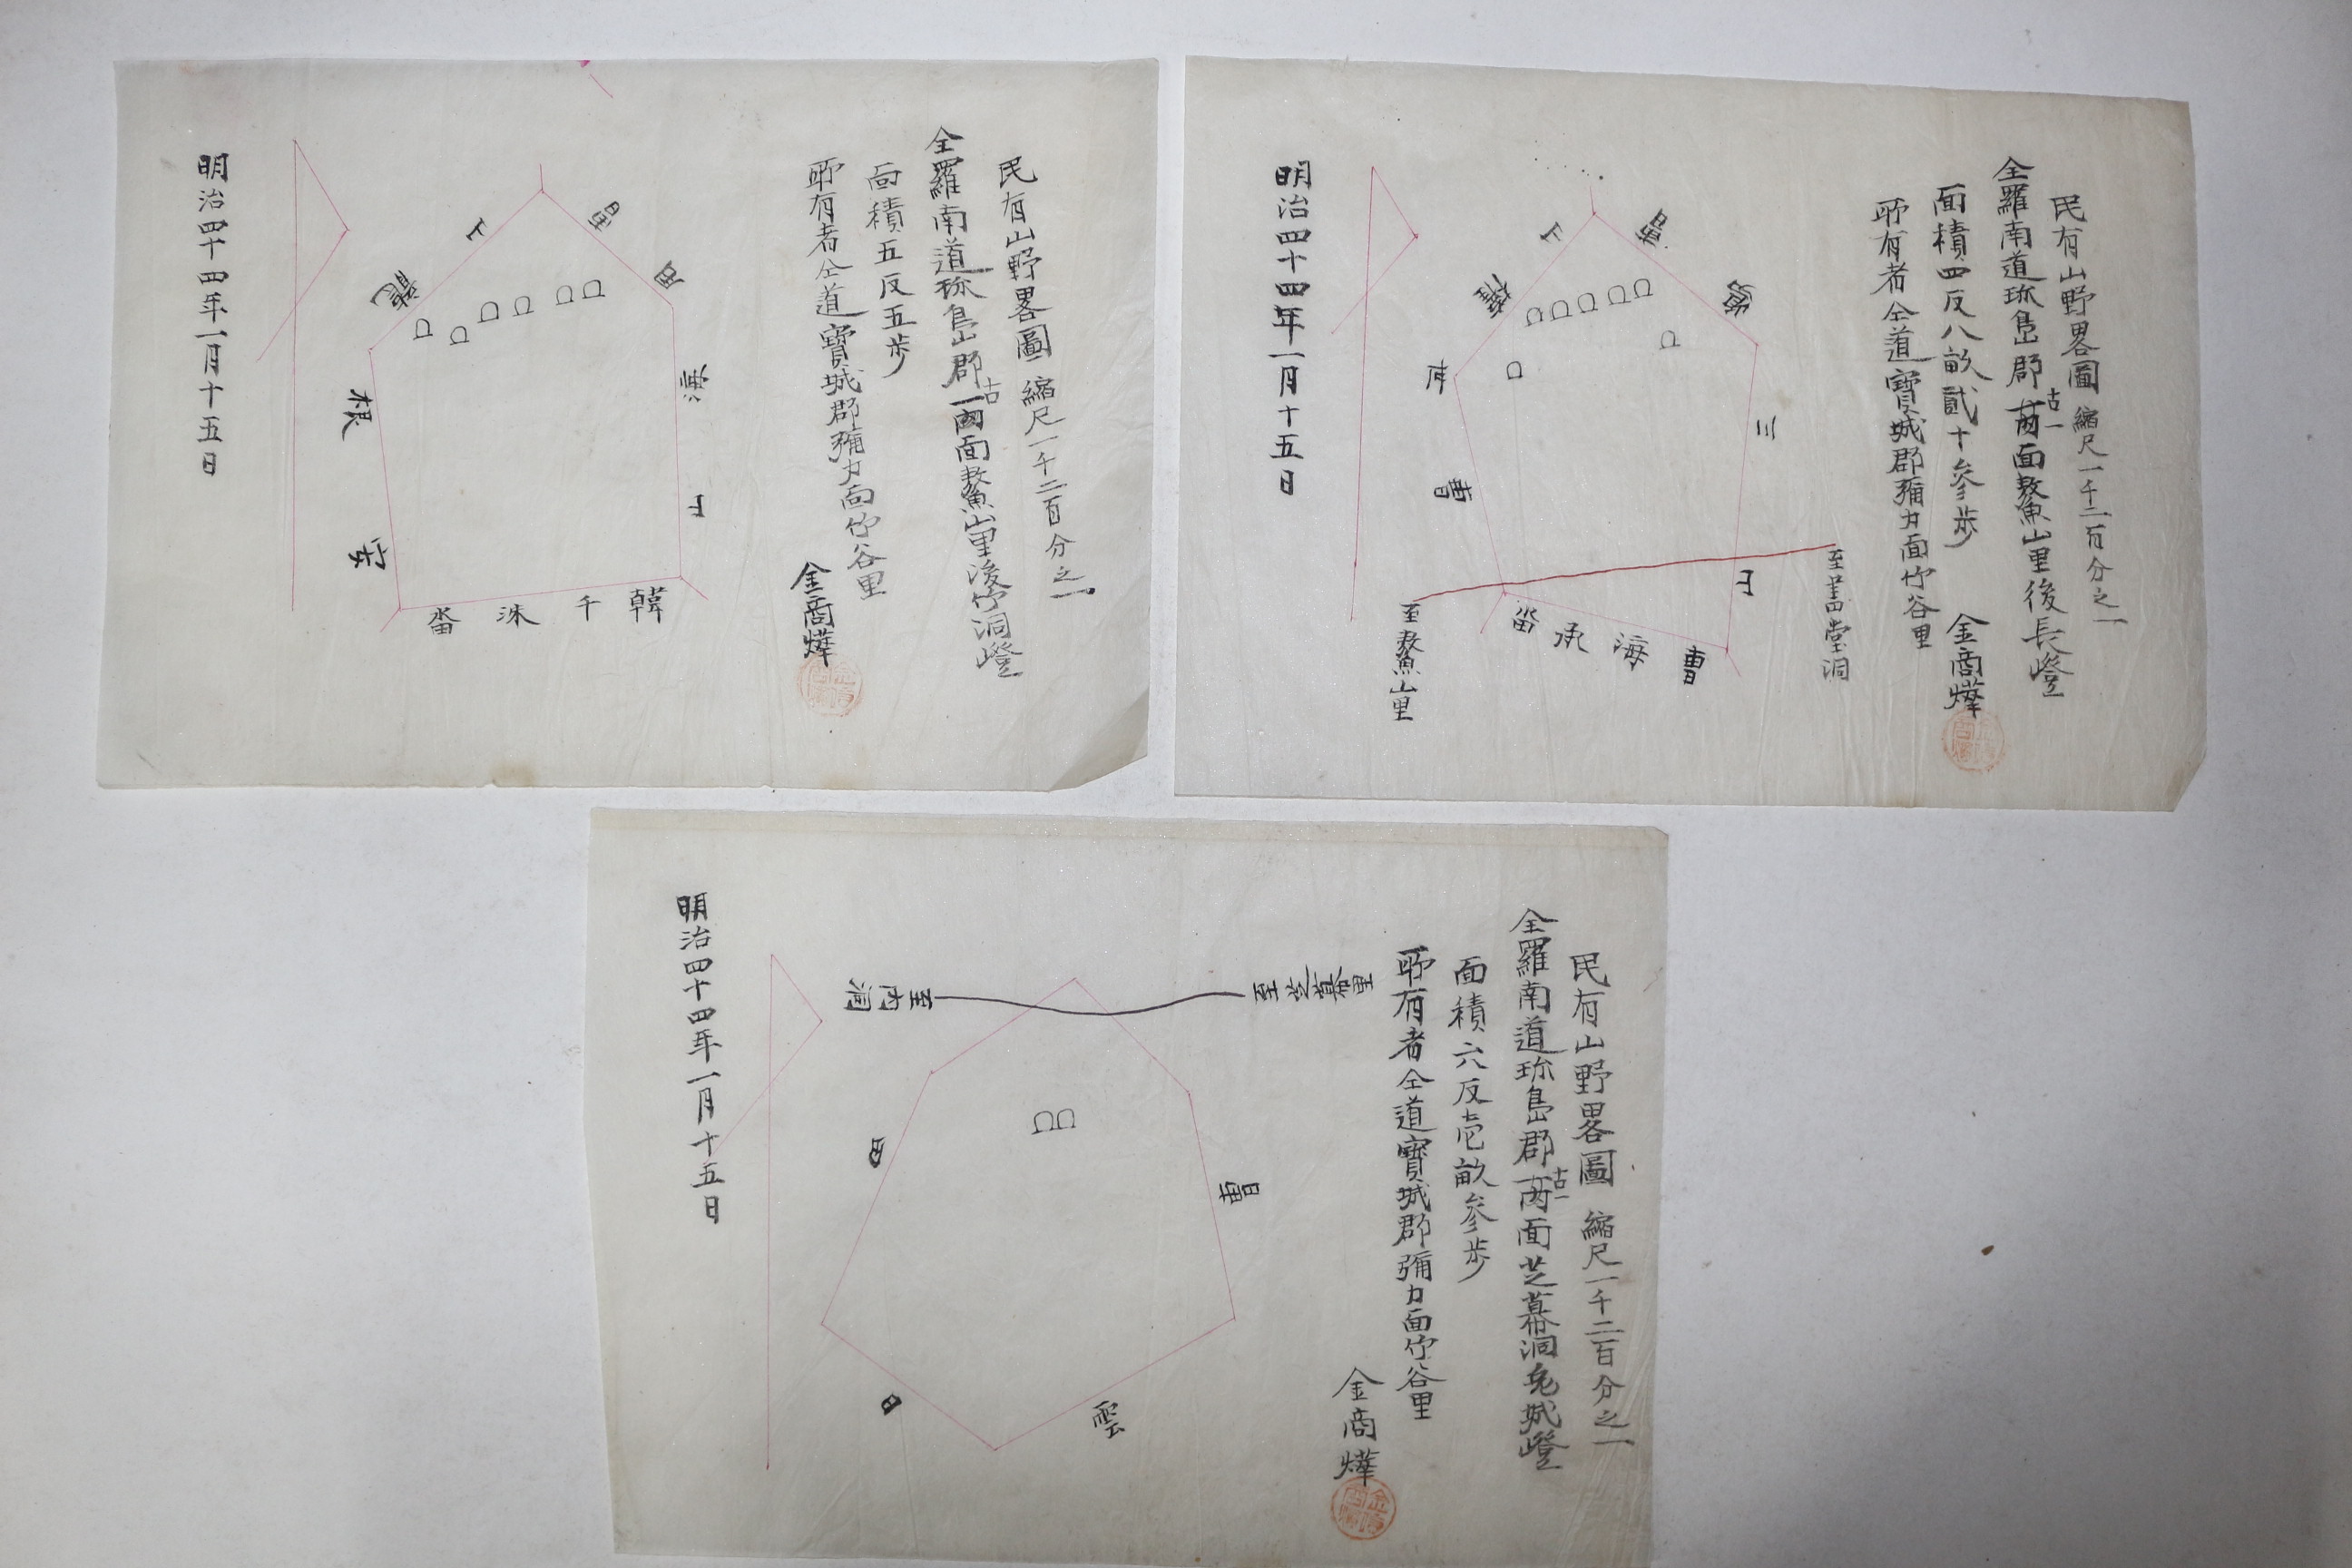 民有山野畧圖 縮尺一千二百分之一
全羅南道珎島郡古一面面鰲山里後竹洞嶝
面積五反五步
所有者仝道寶城郡彌力面竹谷里
金商燁
韓千洙畓
安
根
明治四十四年一月十五日
民有山野畧圖 縮尺一千二百分之一
全羅南道珎島郡古一面面鰲山里後長嶝
面積四反八畝貳十參步
所有者仝道寶城郡彌力面竹谷里
金商燁
至書堂洞
至鰲山里
曺海承畓
三
明治四十四年一月十五日
民有山野畧圖 縮尺一千二百分之一
全羅南道珎島郡古一面面芝幕洞兎城嶝
面積六反壱畝參步
所有者仝道寶城郡彌力面竹谷里
金商燁
至芝幕里
至內洞
曺
雲
明治四十四年一月十五日